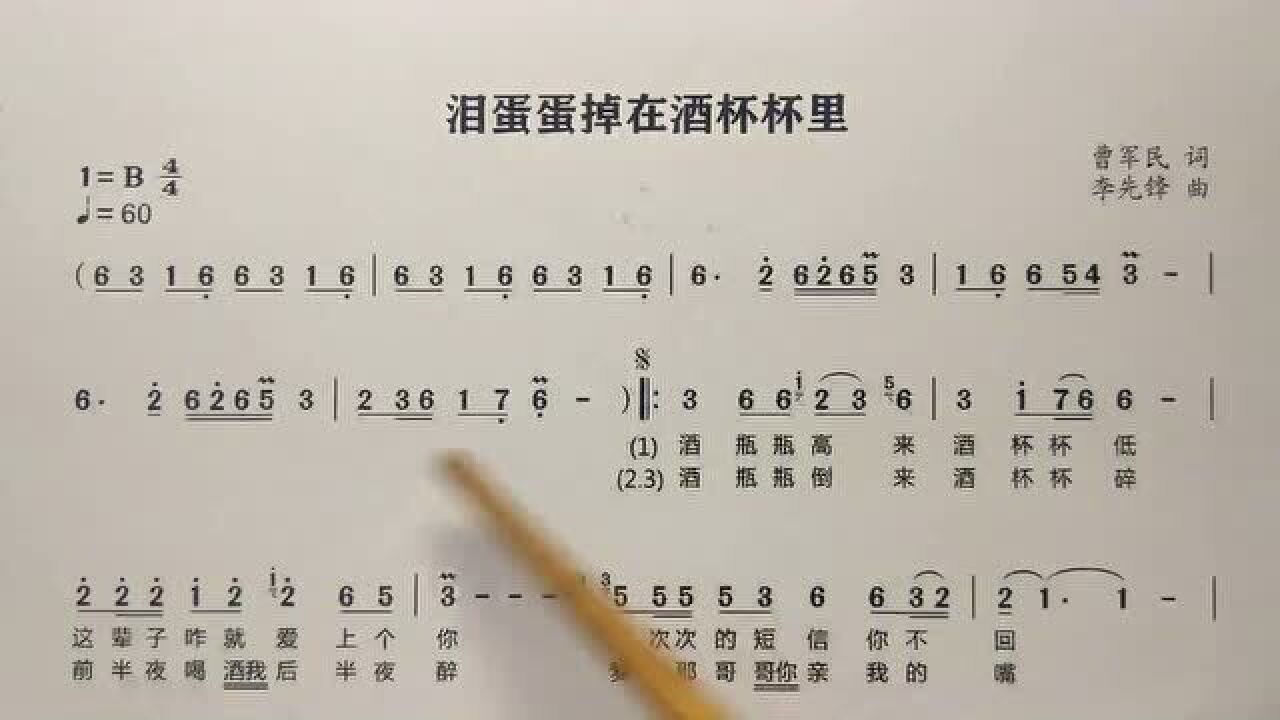 泪蛋蛋掉在酒杯杯里
曹军民 词
1=B 4/4
李先锋 曲
♩=60
(6 3 1 6 6 3 1 6 | 6 3 1 6 6 3 1 6 | 6· 2 6265 3 | 1 6 6 54 3 - |
6· 2 6265 3 | 2 36 1 7 6 - ) 𝄋 ‖: 3 6 6 i 2 3 5 6 | 3 1 76 6 - |
(1) 酒 瓶 瓶 高 来 酒 杯 杯 低
(2.3) 酒 瓶 瓶 倒 来 酒 杯 杯 碎
2 2 2 1 2 i 2 6 5 | 3 - - - 3 5 55 5 3 6 6 32 | 2 1· 1 - |
这 辈 子 咋 就 爱 上 个 你 次 次 的 短 信 你 不 回
前 半 夜 喝 酒我 后 半 夜 醉 那 哥 哥你 亲 我 的 嘴